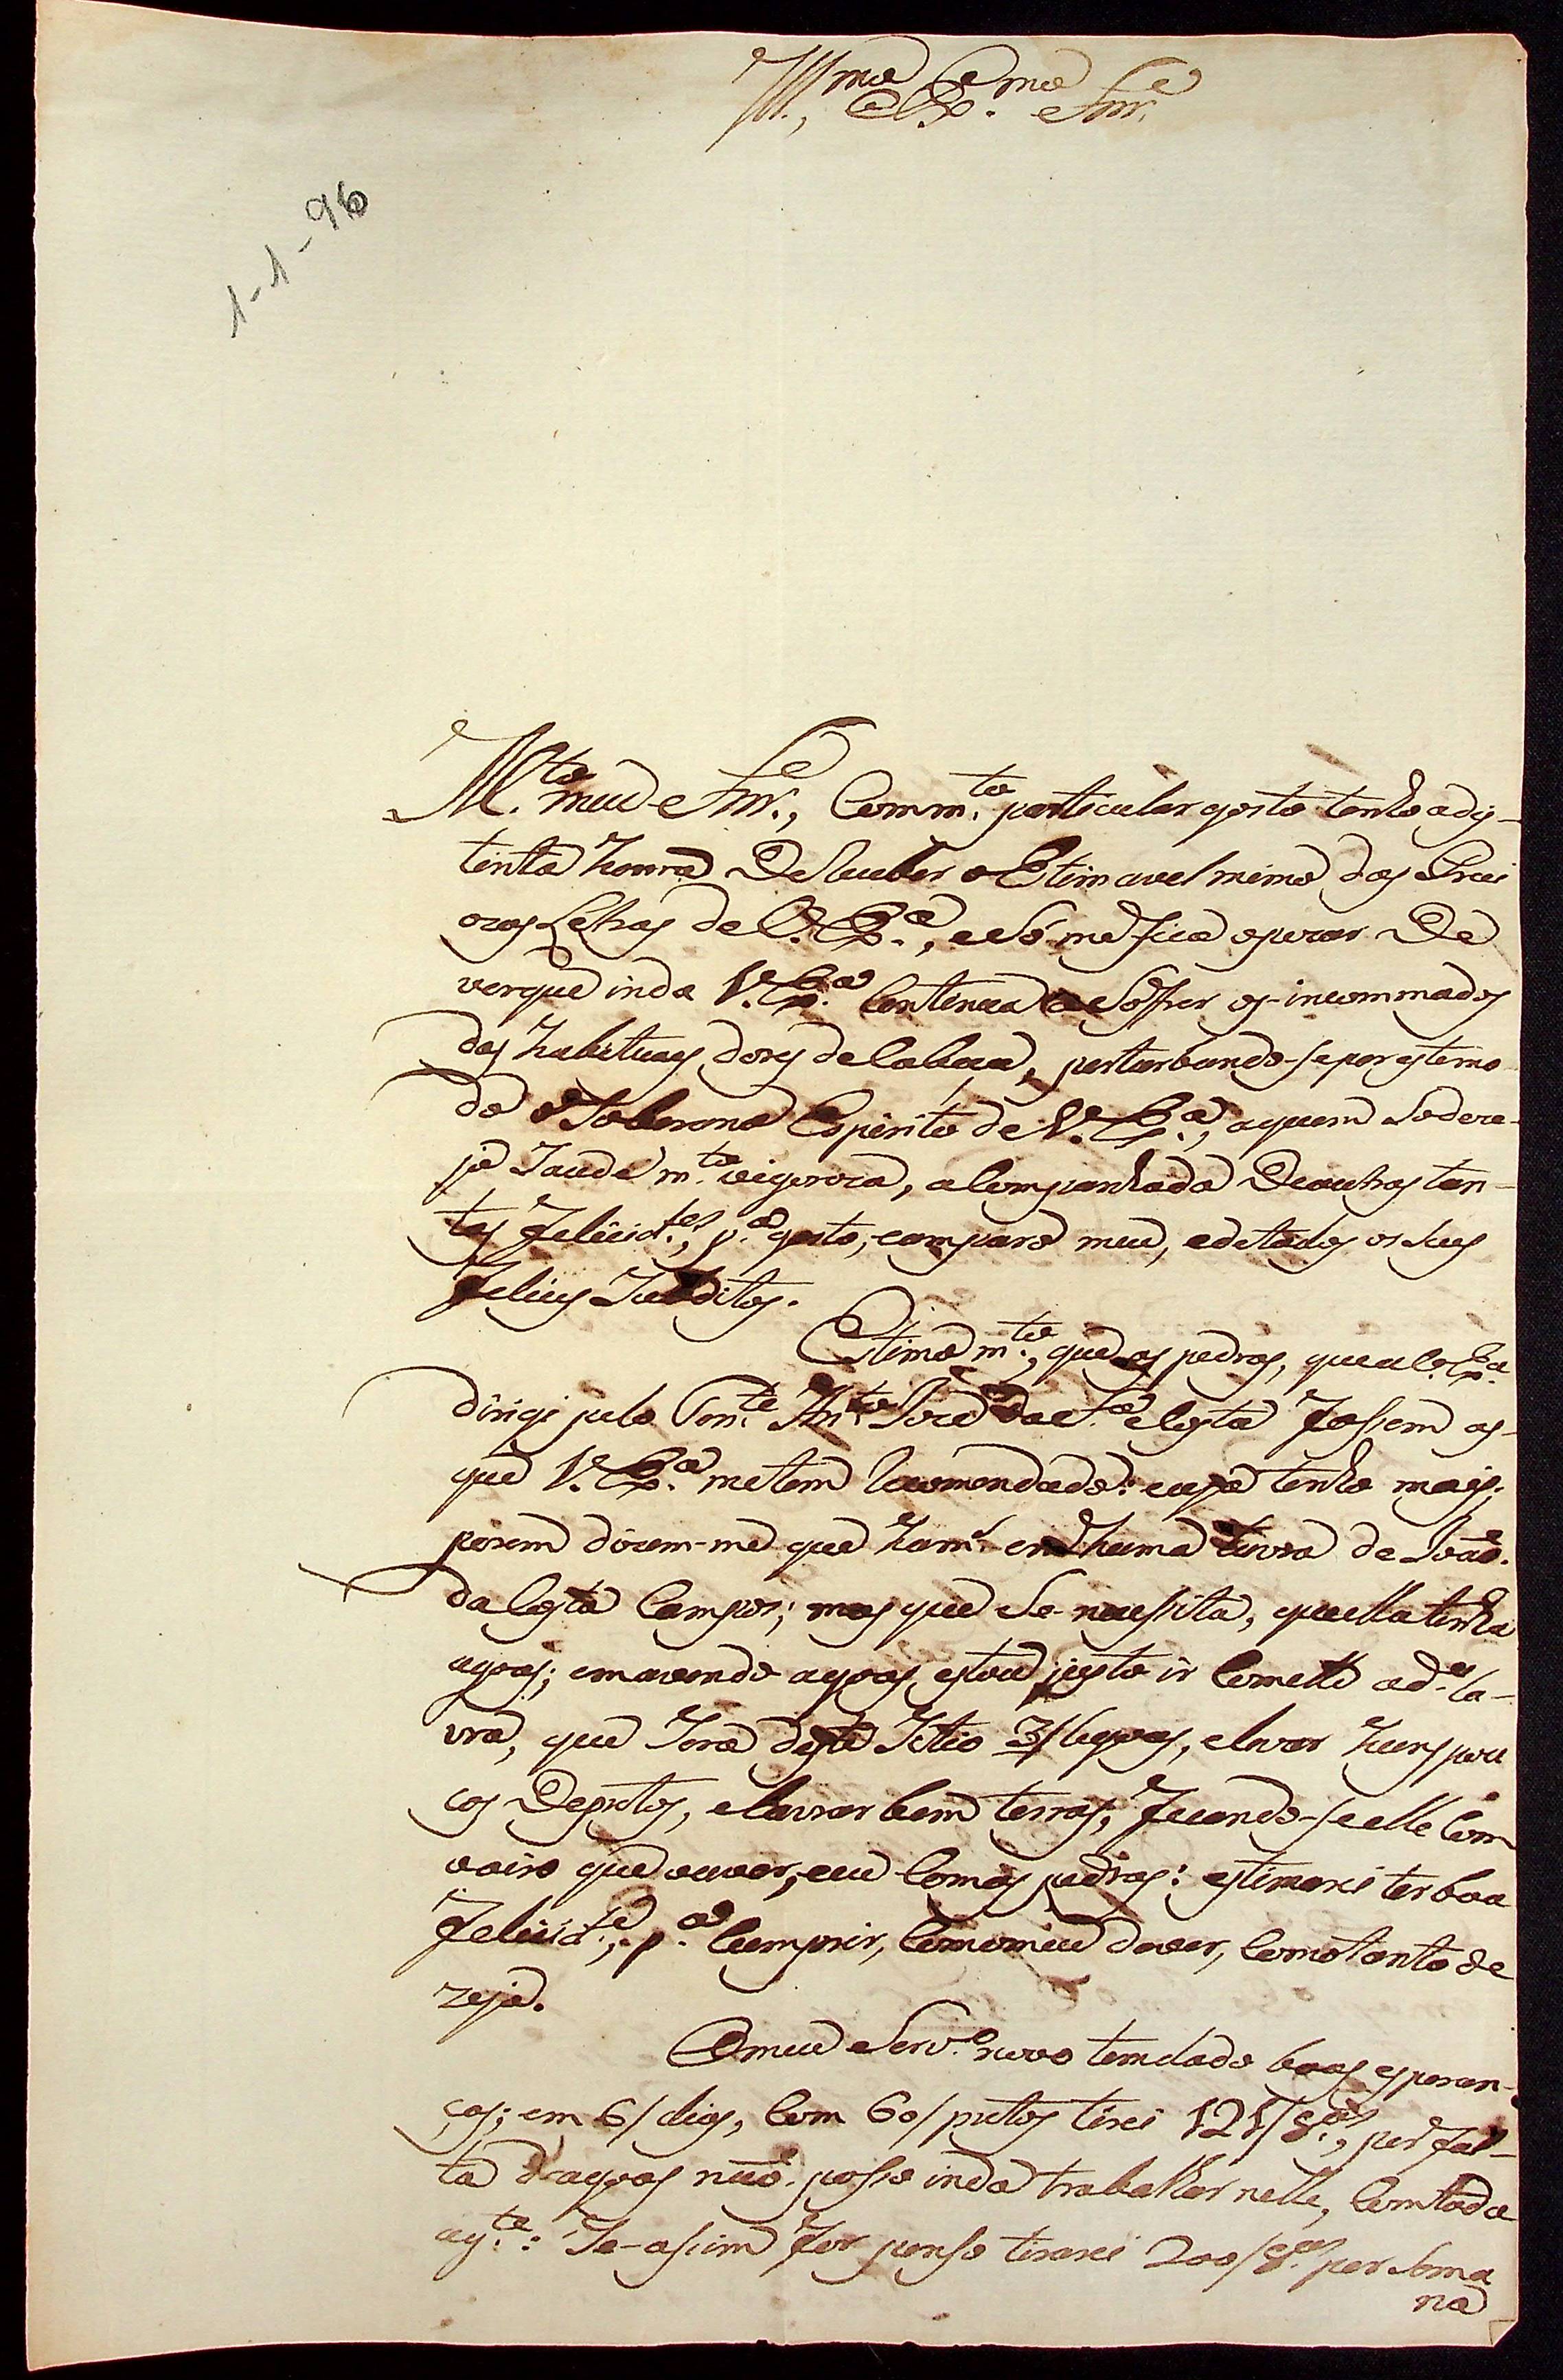 Ill.mo Ex.mo Snr.e
1-1-96
M.to meu Snr.e, Com m.to particular gosto tenho a dis-
tinta honra De Receber o Estimavel mimo das Preci
ozas Letras de V. Ex.a, e Só me fica o pezar De
ver que inda V. Ex.a Continua a Soffrer os incommodos
das habituaes dores de Cabeça, perturbando-se por este mo
do o Soberano Espirito de V. Ex.a, a quem So deze-
jo Saude m.to vigoroza, aCompanhada De outras tan-
tas felicid.es, p.a gosto, e amparo meu, e de todos os Seus
felices Subditos.
Estimo m.to, que as pedras, que a V. Ex.a
dirigi pelo Ten.te An.to Joze da S.a e Costa fossem as
que V. Ex.a me tem Recomendado: eu já tenho mais;
porem dizem-me que ham en huma Lavra de João
da Costa Campos; mas que Se necessita, que ella tenha
agoas; em avendo agoas estou justo ir Com elle a d.a La-
vra, que Sera deste Sitio 3/ legoas, e levar huns pou
cos De pretos, e lavrar bem terras; ficando-se elle Com
o oiro que ouver, e eu Com as pedras: estimarei ter boa
felicid.e, p.a Cumprir, Com o meu dever, Como tanto de
zejo.
O meu Serv.o novo tem dado boas esperan-
ças; em 6/ dias, Com 60/ pretos tirei 121/8.as, por fal-
ta d'agoas não posso inda trabalhar nelle, Com toda
a g.te: Se assim for penso tirarei 200/8.as por Soma
na